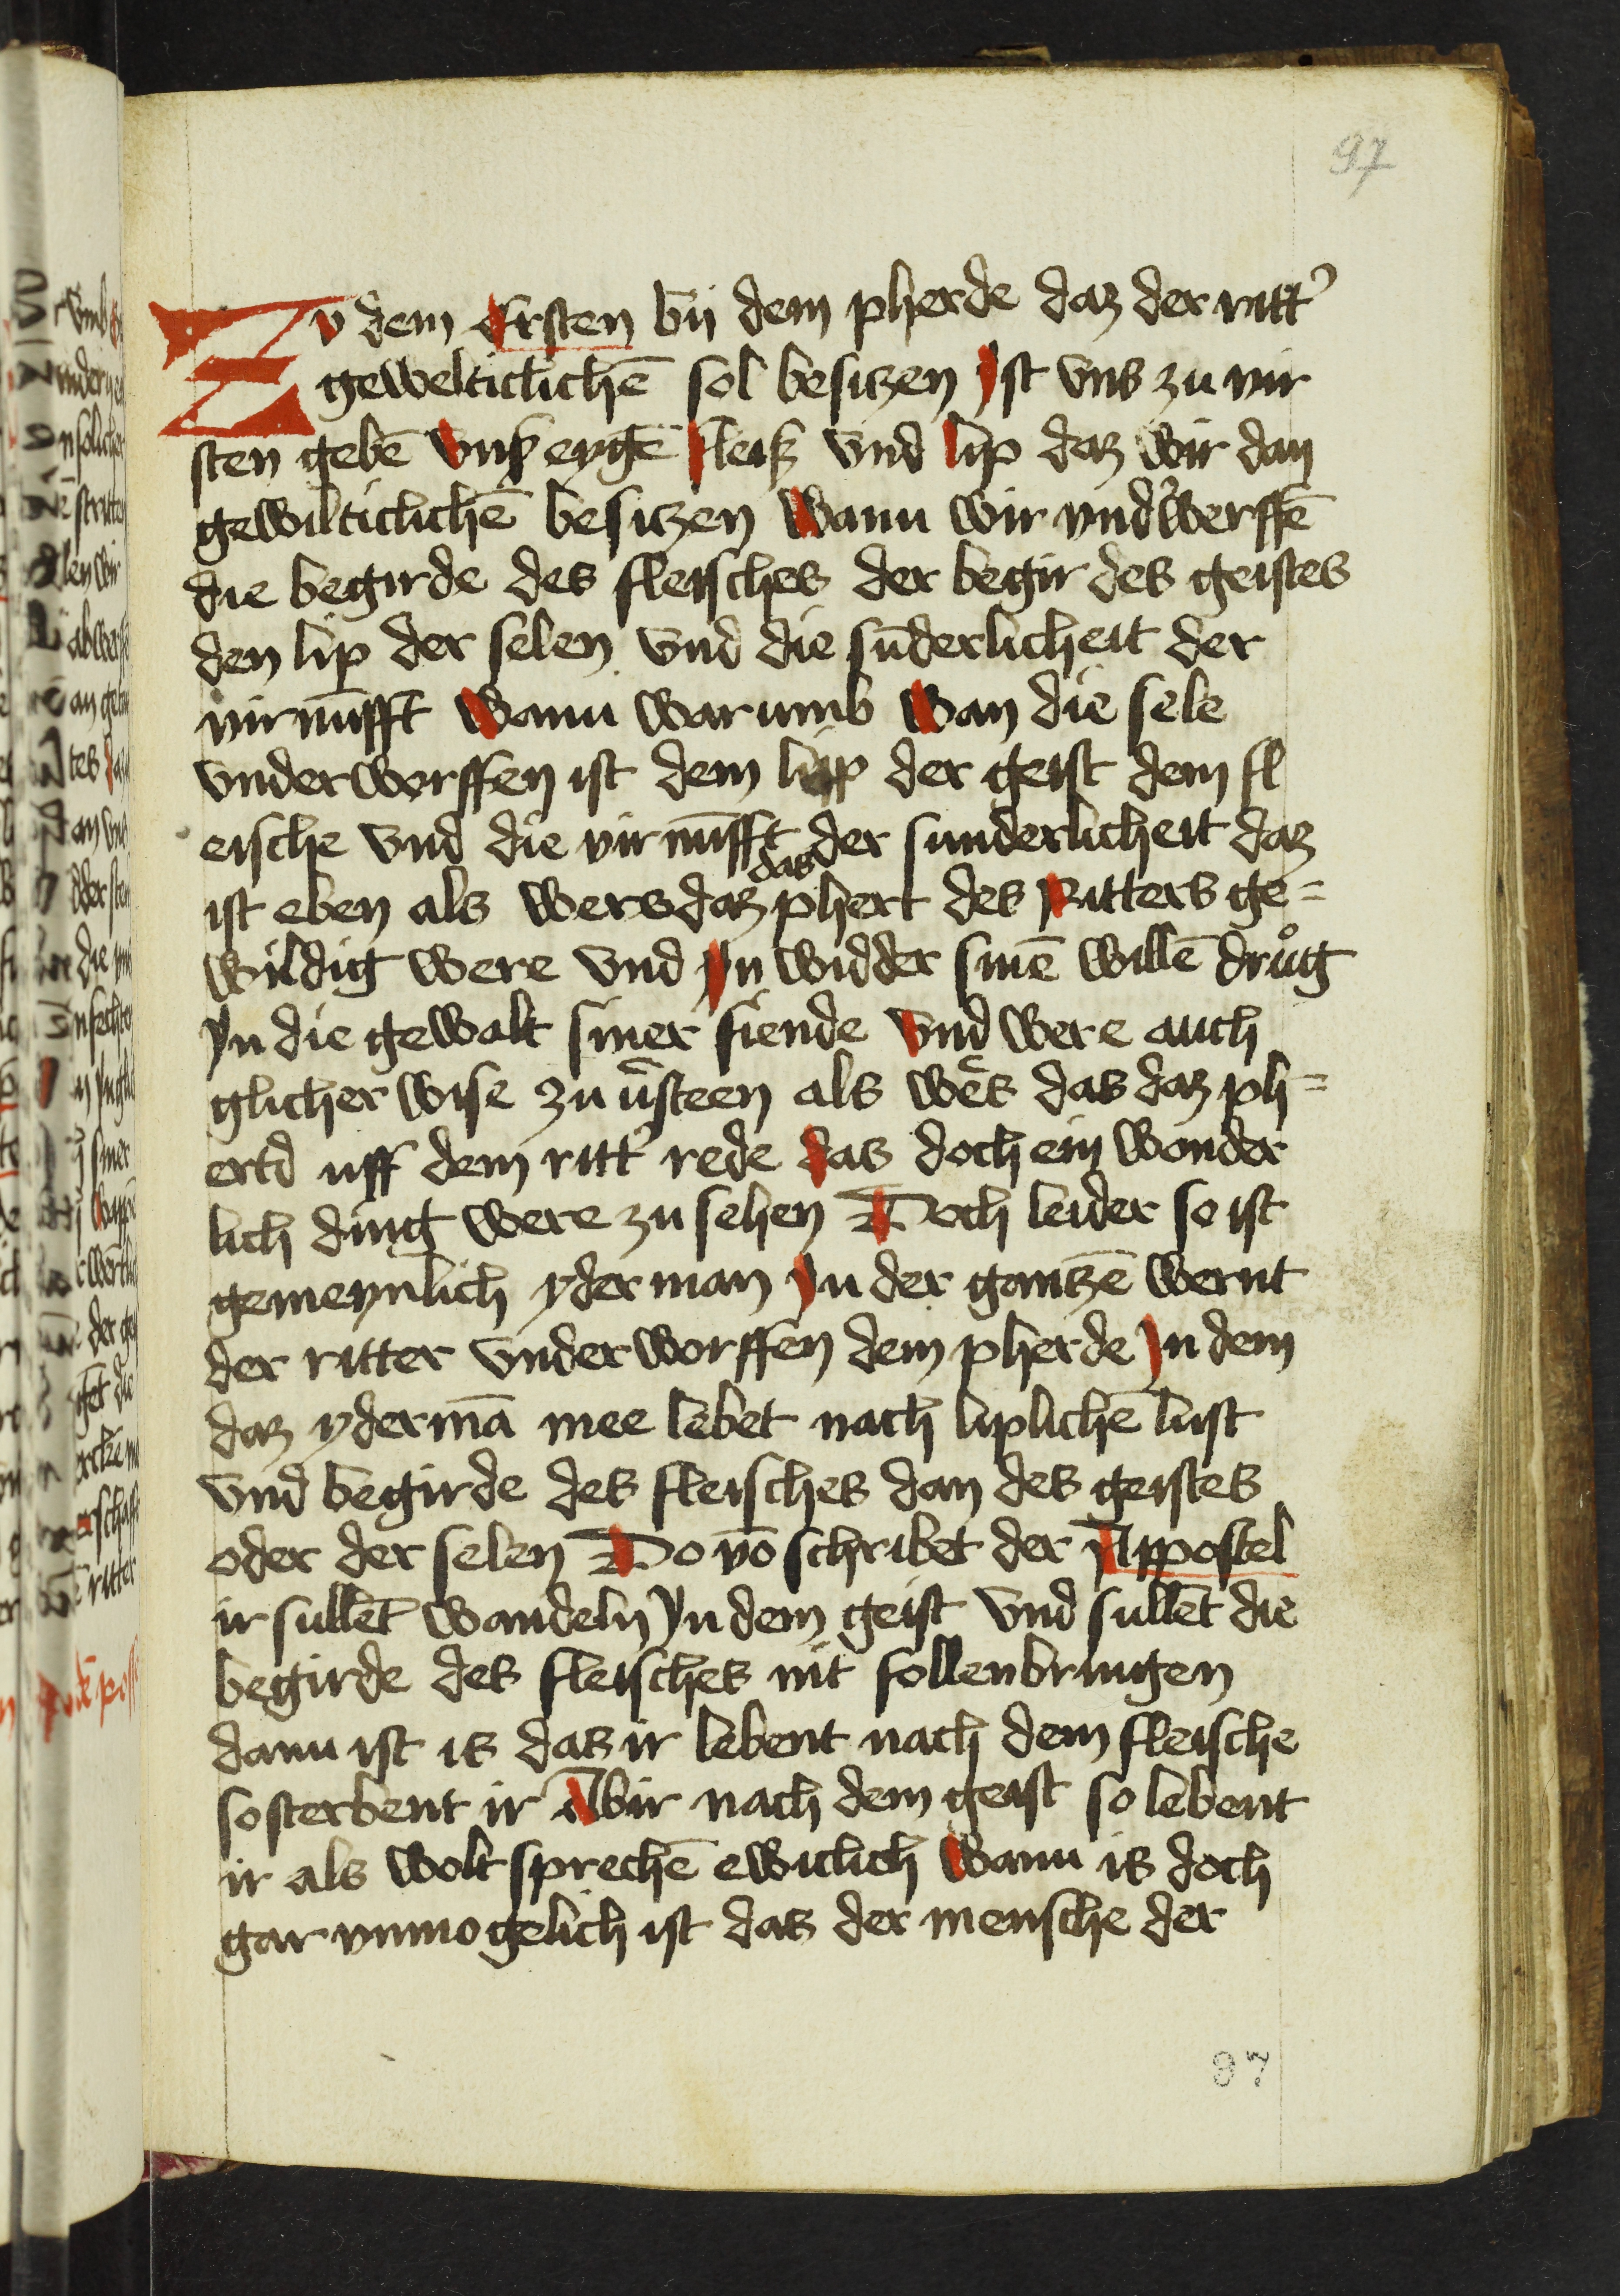 97
Zv dem Ersten bij dem pherde daz der ritt᾽
gewelticlichē sol besitzen Jst vns zu vir
sten gebē vnß eygē fleiß vnd lip daz wir dan
gewilticlichē besitzen Wann wir vnd᾽werffē
die begirde des fleisches der begir des geistes
den lip der selen vnd die sūderlicheit der
virnūfft Wann warumb Wan die sele
vnderworffen ist dem lipp der geist dem fl
eische vnd die virnūfft der sunderlicheit daz
das
ist eben als wers daz phert des Ritters ge=
wildig were vnd Jn widder sinē willē drůg
Jn die gewalt siner fiende Vnd were auch
glicher wise zu v᾽steen als we᾽s das daz ph=
ertd uff dem ritt᾽ rede das doch ein wonder
lich ding were zu sehen Doch leider so ist
gemeynlich yderman Jn der gantzē wernt
der ritter vnderworffen dem pherde Jn dem
daz ydermā mee lebet nach liplichē lust
vnd begirde des fleisches dan des geistes
oder der selen Do vō schribet der Appostel
ir sullēt wandeln Jn dem geist vnd sullēt die
begirde des fleisches nit follenbringen
dann ist is das ir lebent nach dem fleische
so sterbent ir Abir nach dem geist so lebent
ir als wolt sprechē ewiclich Wann is doch
gar vnmogelich ist das der mensche der
87